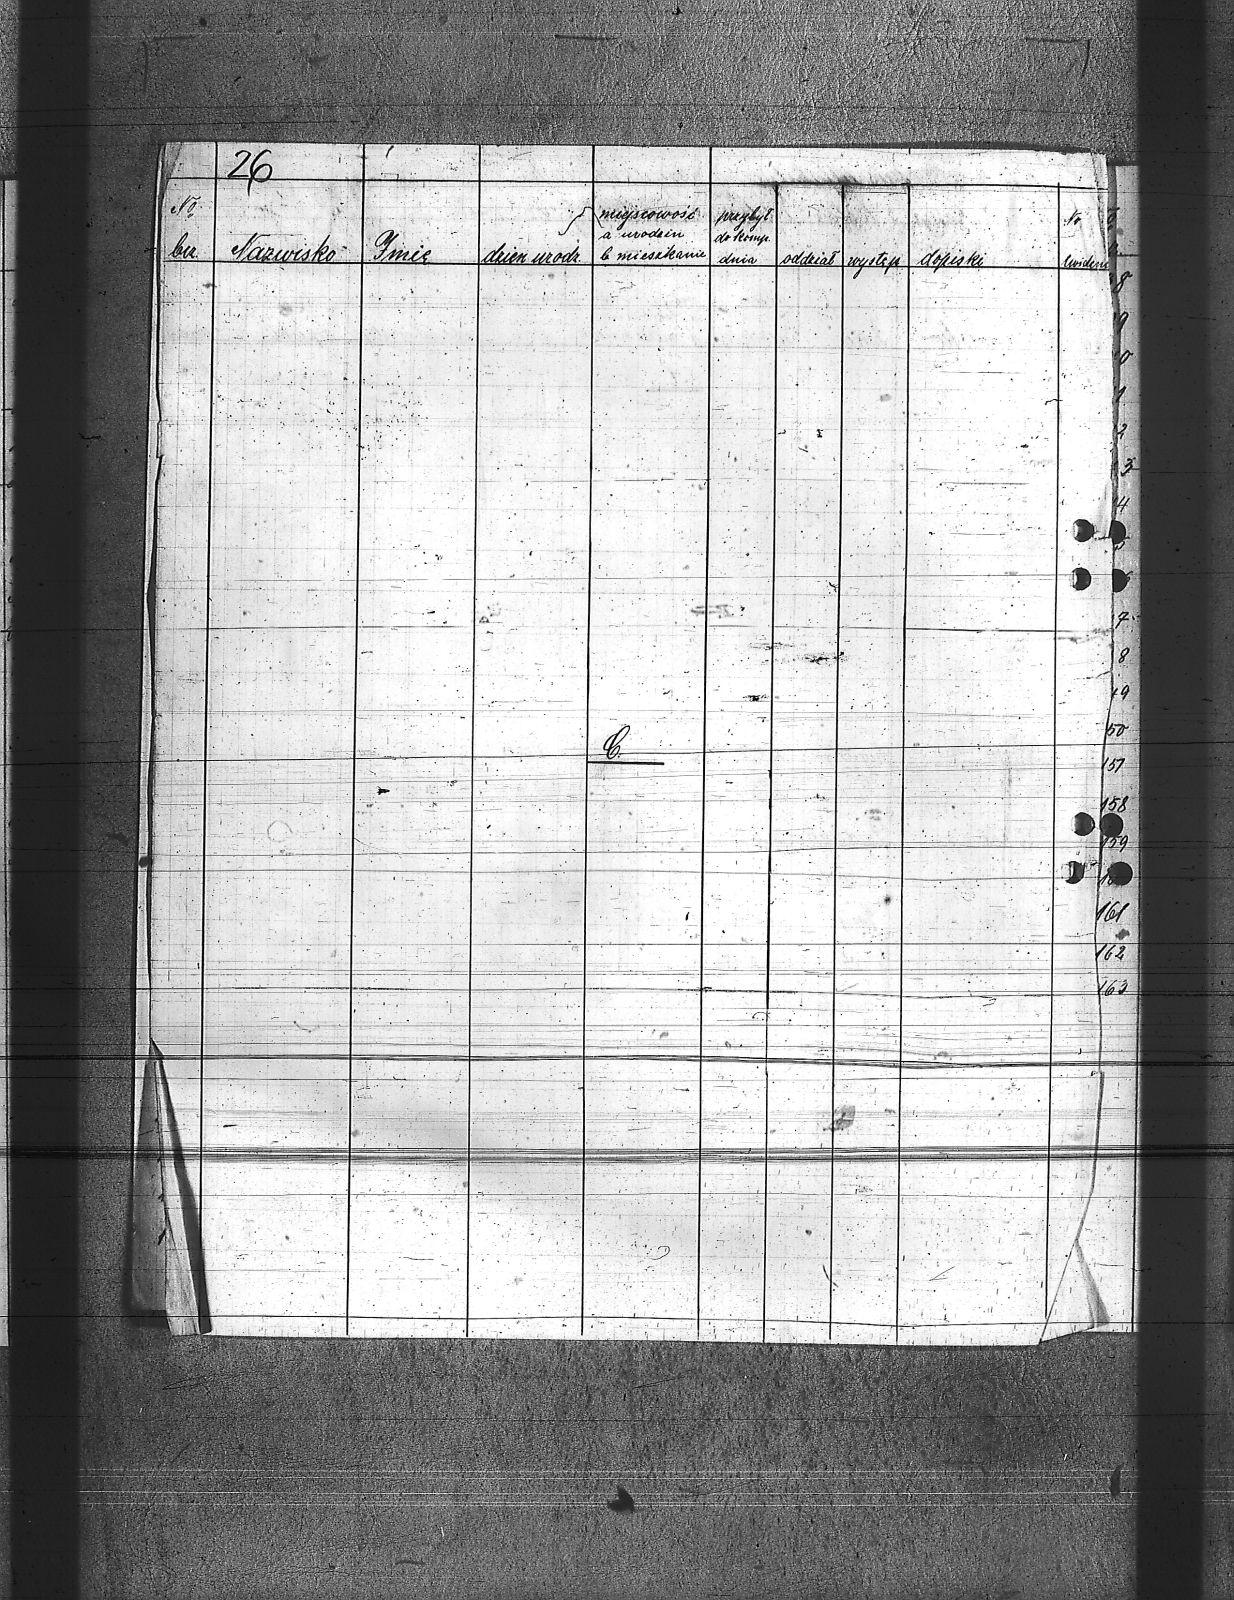 26
No miejscowość przybył No
a urodzin do komp.
Nazwisko Imię dzień urodz. b mieszkanie dnia oddział występ dopiski
8
9
0
1
2
3
4
7
8
9
50
C.
157
158
159
161
162
163